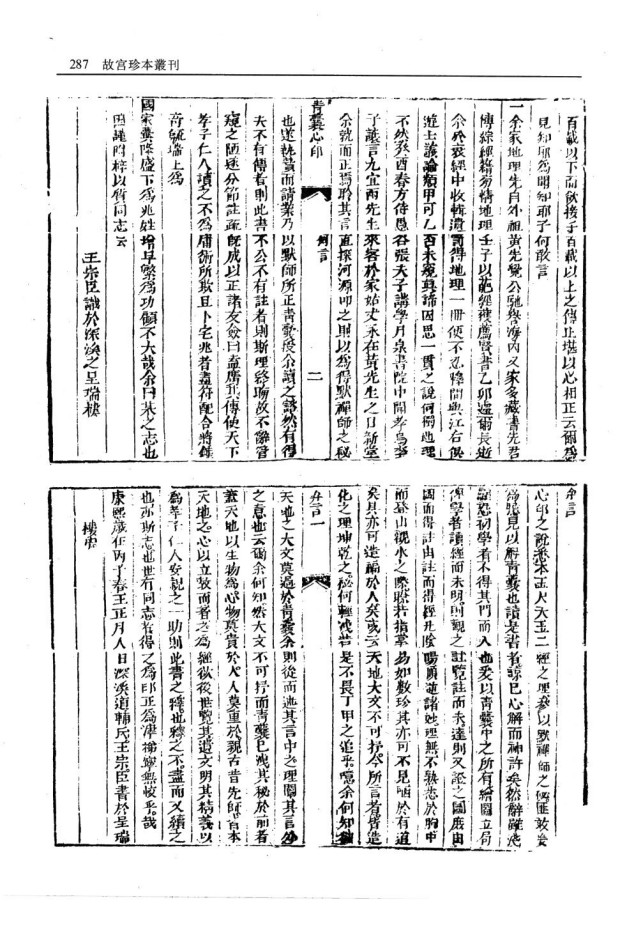 287 故宫珍本叢刊
百歲以下而欲接子百歲以上之傳止堪以心相正云爾爲
見知耶爲聞知耶子何敢言
一余家地理先自外祖黃先覺公馳譽海內又家多藏書先君
傳綜經籍旁情地理壬子以葩經薦賢書乙卯遭爾長逝
余於衰經中收輯遺得地理一冊便不忍釋閒與江右俊
遊士議論類甲可乙否未窺眞諦因思一貫之說何獨地理
不然癸酉春方待愚谷張夫子講學月泉書院中聞孝烏
子誠言九宜丙先生來客於家始丈永在黃先生之日新堂
余就而正焉聆其言直探河源叩之則以爲得默禪師之秘
也遂執贄而請業乃以默師所正青囊授余讀之豁然有得
夫不有傳者則此書不公不有註者則斯理終瑞故不辭管
窺之陋逐分節註疏旣成以正諸友僉曰盍廣其傳使天下
孝子仁人讀之不爲庸術所欺且卜宅兆者盡符配合將鍾
奇毓瑞上爲
國家黌隆盛下爲兆姓增早繁爲功顧不大哉余曰某之志也
因謹附梓以質同志云
王宗臣識於深溪之呈瑞樓
青囊心印
例言
二
弁言
心印之說悉本玉尺天玉二經之理參以默禪師之秘匪敢妄
爲臆見以解青囊也讀是書者諒已心解而神許矣然辭雖淺
猶恐初學者不得其門而入也爰以青囊中之所有繪圖立局
俾學者讀經而未明則觀之註覽註而未達則又訟之圖庶由
圖而得註由註而得經凡陰陽順逆諸妙理無不熟悉於胸中
而登山觀水之際瞭若指掌易如數珍其亦可不見哂於有道
矣其亦可造福於人矣或云天地大文不可抒今所言者皆造
化之理坤乾之秘何輕洩若是不畏丁甲之追乎噫余何知
弁言一
天地之大文莫過於青囊余則從而述其言中之理闡其言外
之意也云爾余何知然大文不可抒而青囊已洩其秘於前者
蓋天地以生物爲心物莫貴於人人莫重於親古昔先師旨本
天地之心以立教而著之爲經欲後世覽其遺文明其精義以
爲孝子仁人安親之一助則此書之釋也釋之不盡而又續之
也亦斯志也世有同志者得之爲印正爲津梯寧無校乎哉
康熙歲在丙子春王正月人日深溪道輔氏王宗臣書於呈瑞
樓中